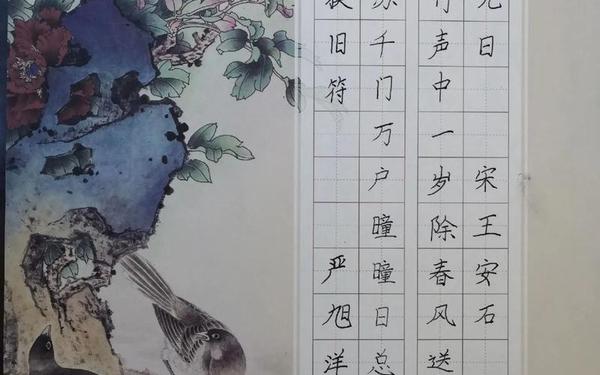 元日 宋王安石
竹声中一岁除春风送
苏千门万户曈曈日总
旧符 严旭洋